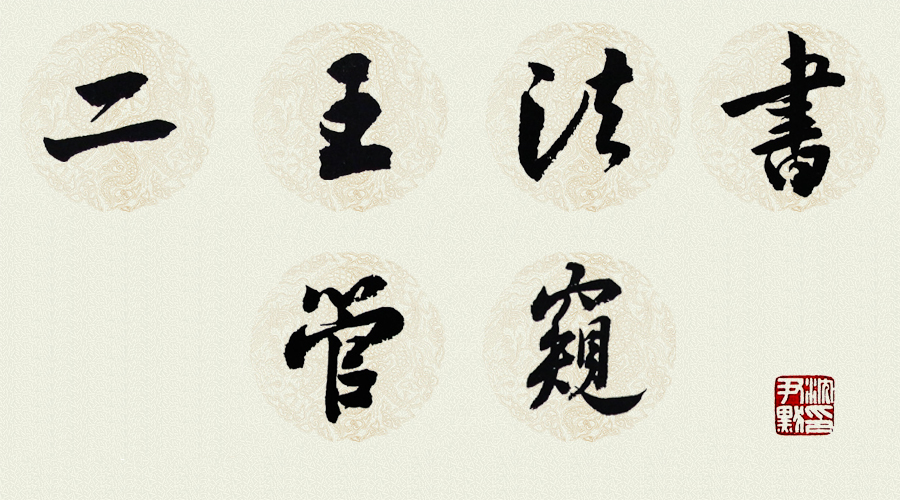 二王法書
管窺
沈尹默印